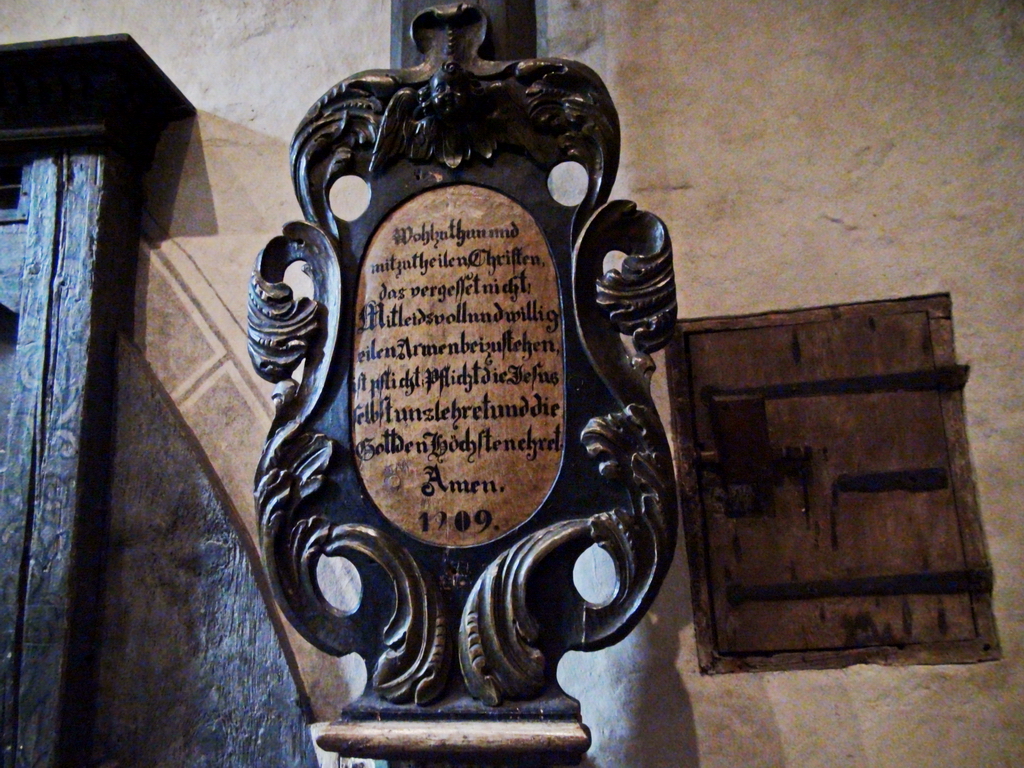 Wohlzuthun und
mitzutheilen Christen,
das vergesset nicht;
Mitleidsvoll und willig
eilen Armen beizustehen,
ist pflicht; Pflicht die Jesus
selbst uns lehret und die
Gott den Höchsten ehret
Amen.
1209.